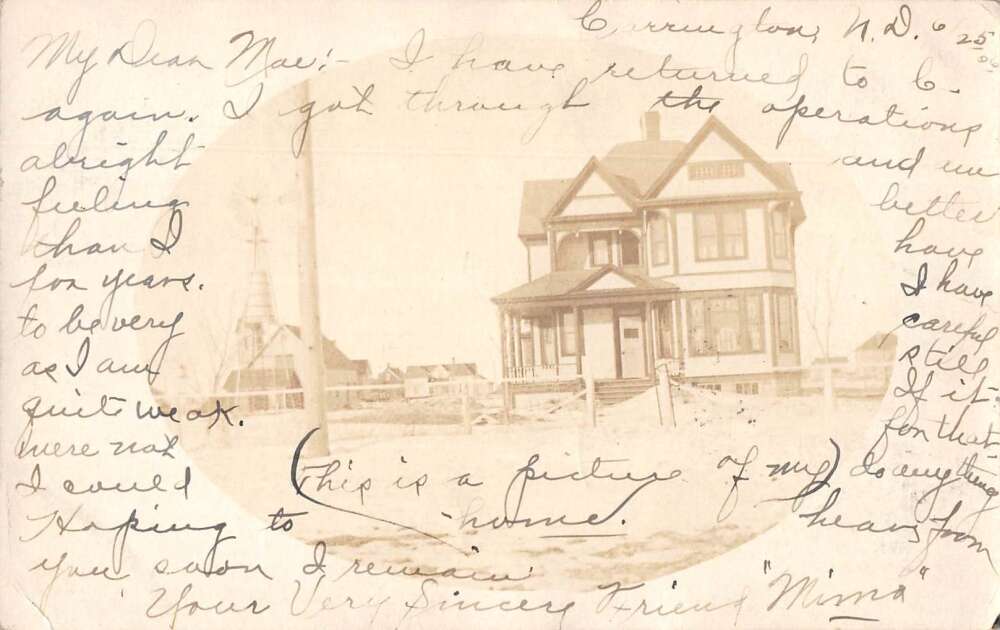 Carrington, N.D. 6/25/06
My Dear Mae:- I have returned to C.
again. I got through the operations
alright and am
feeling better
than I have
for years. I have
to be very careful
as I am still
quite weak. If it
were not for that
I could do anything
(This is a picture of my home.)
Hoping to hear from
you soon I remain
Your Very Sincere Friend "Mima"